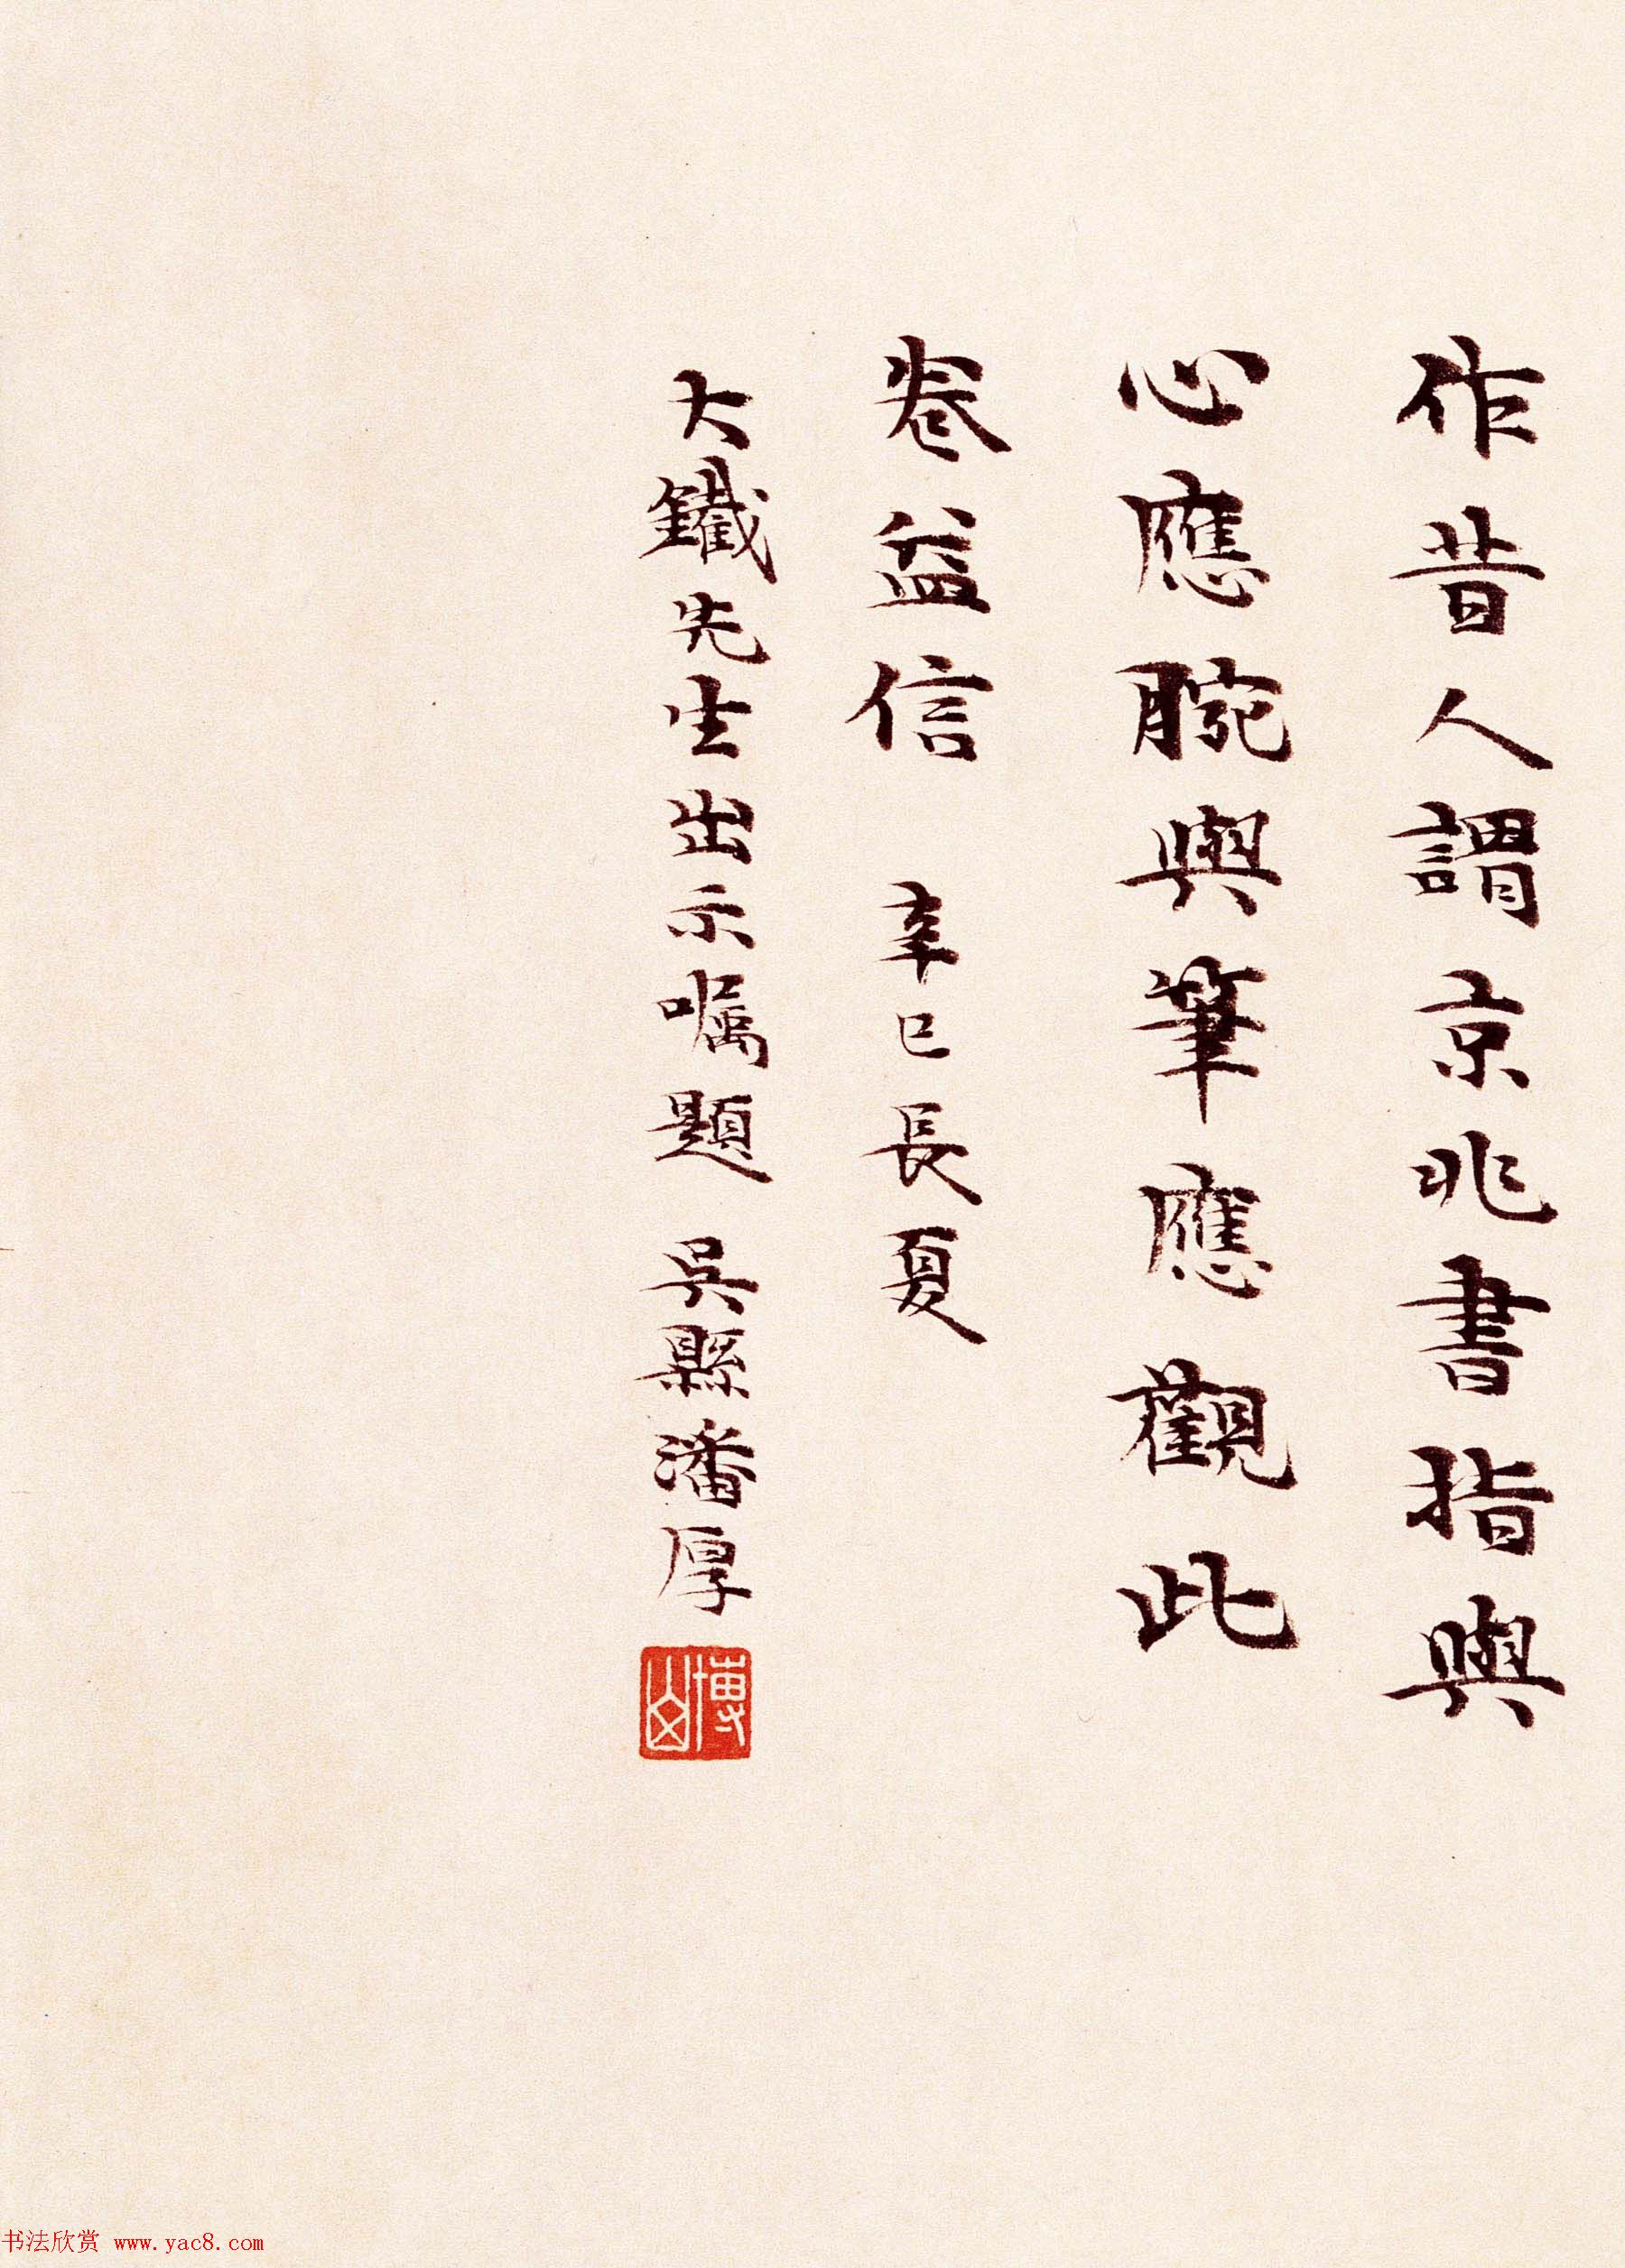 作昔人謂京兆書指與
心應腕與筆應觀此
卷益信 辛巳長夏
大鐵先生出示嘱題 吳縣潘厚
博山
书法欣赏 www.yac8.com